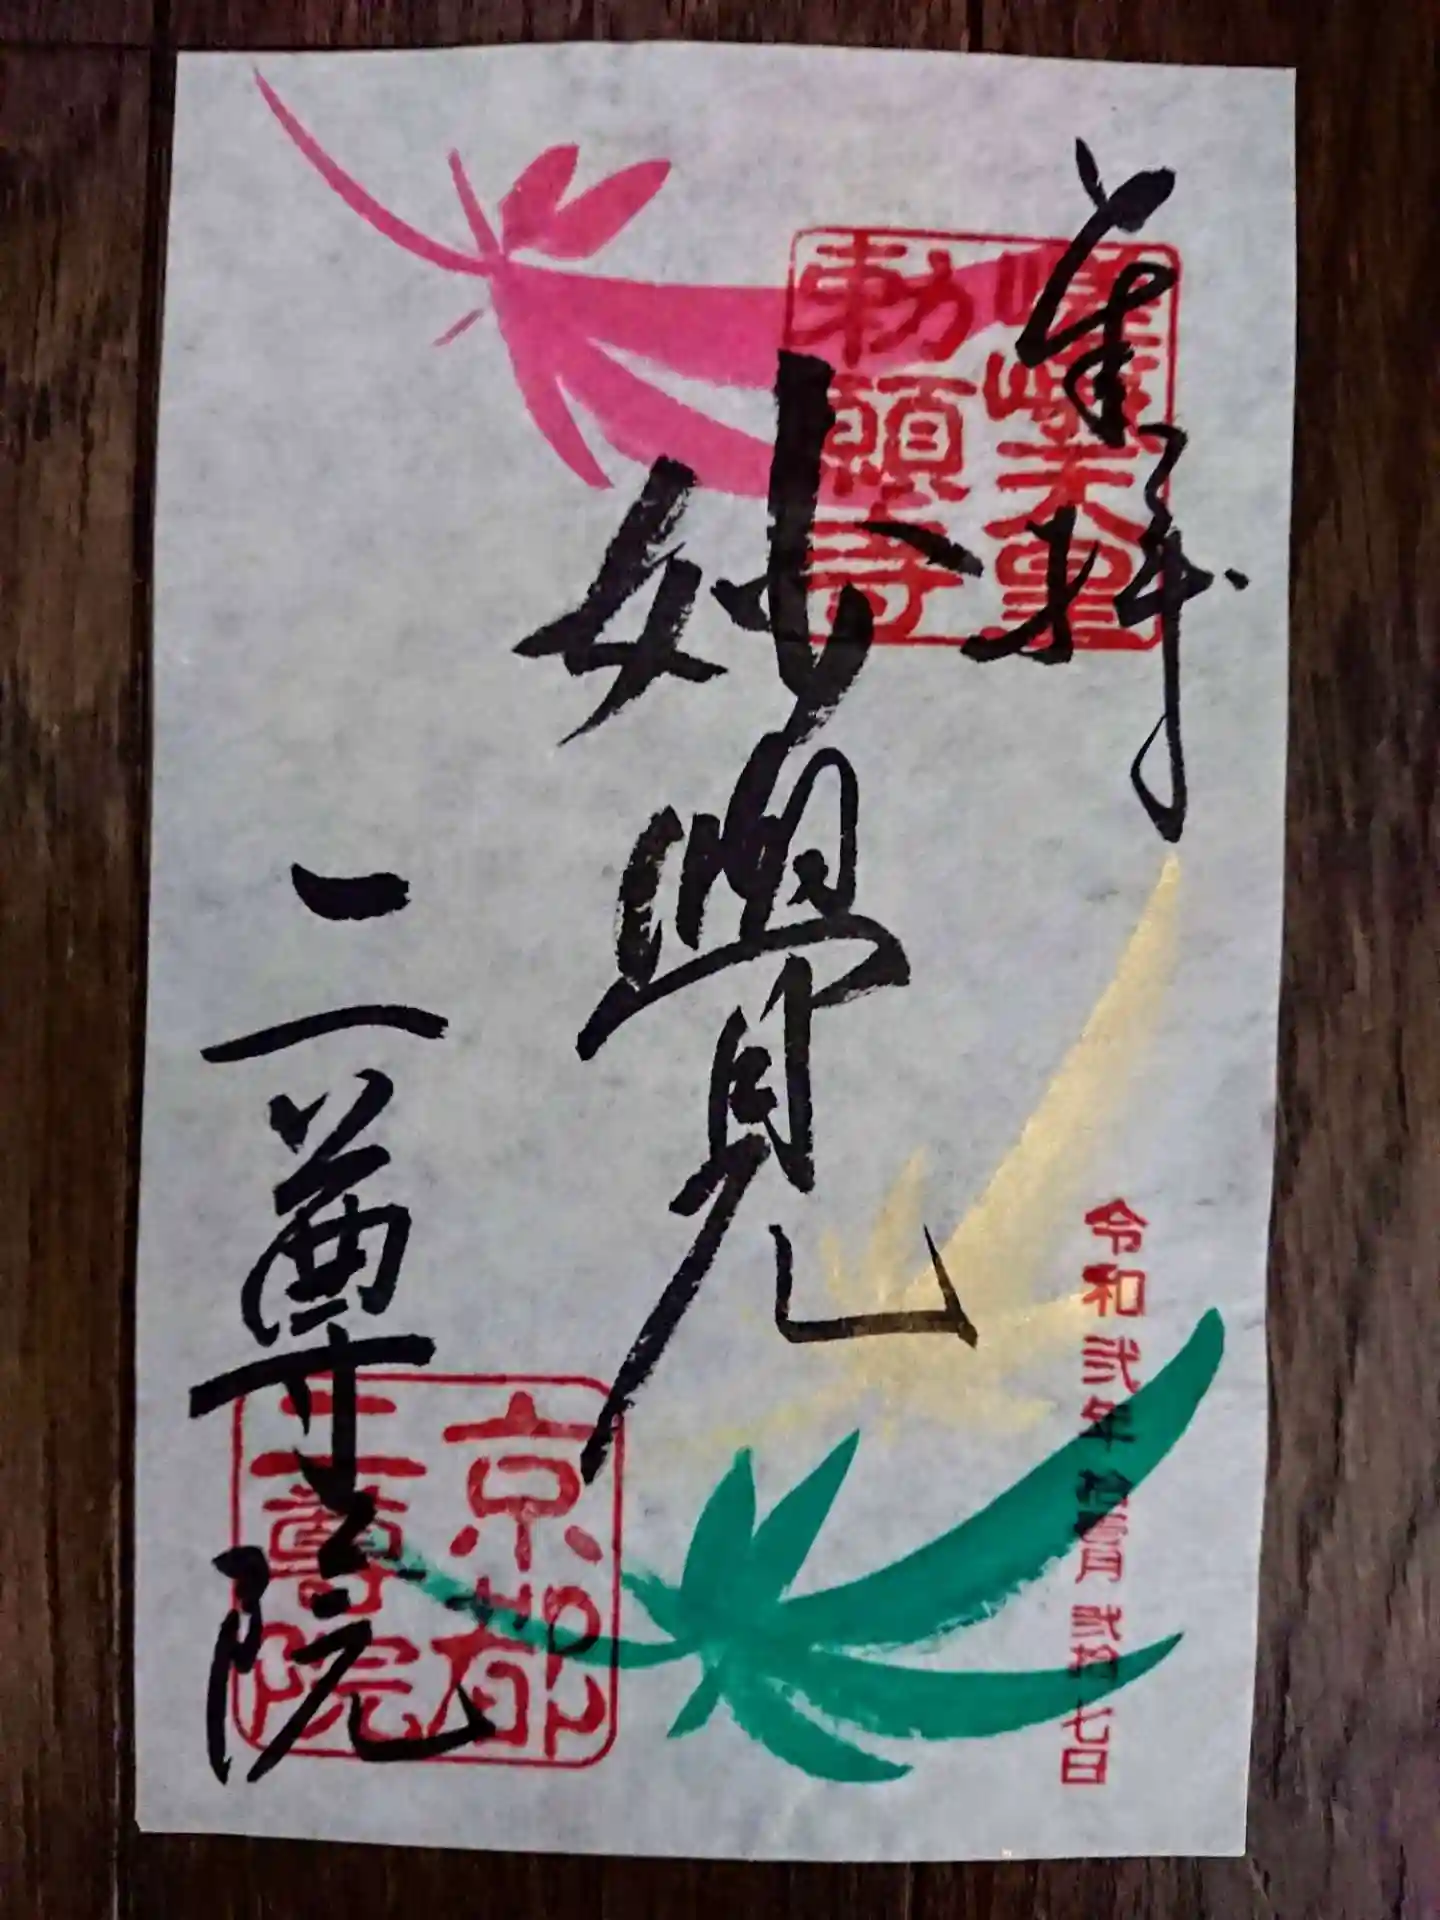 奉拝
嵯峨天皇
勅願寺
妙覺
令和弐年拾壹月弐拾七日
二尊院
京都
二尊院